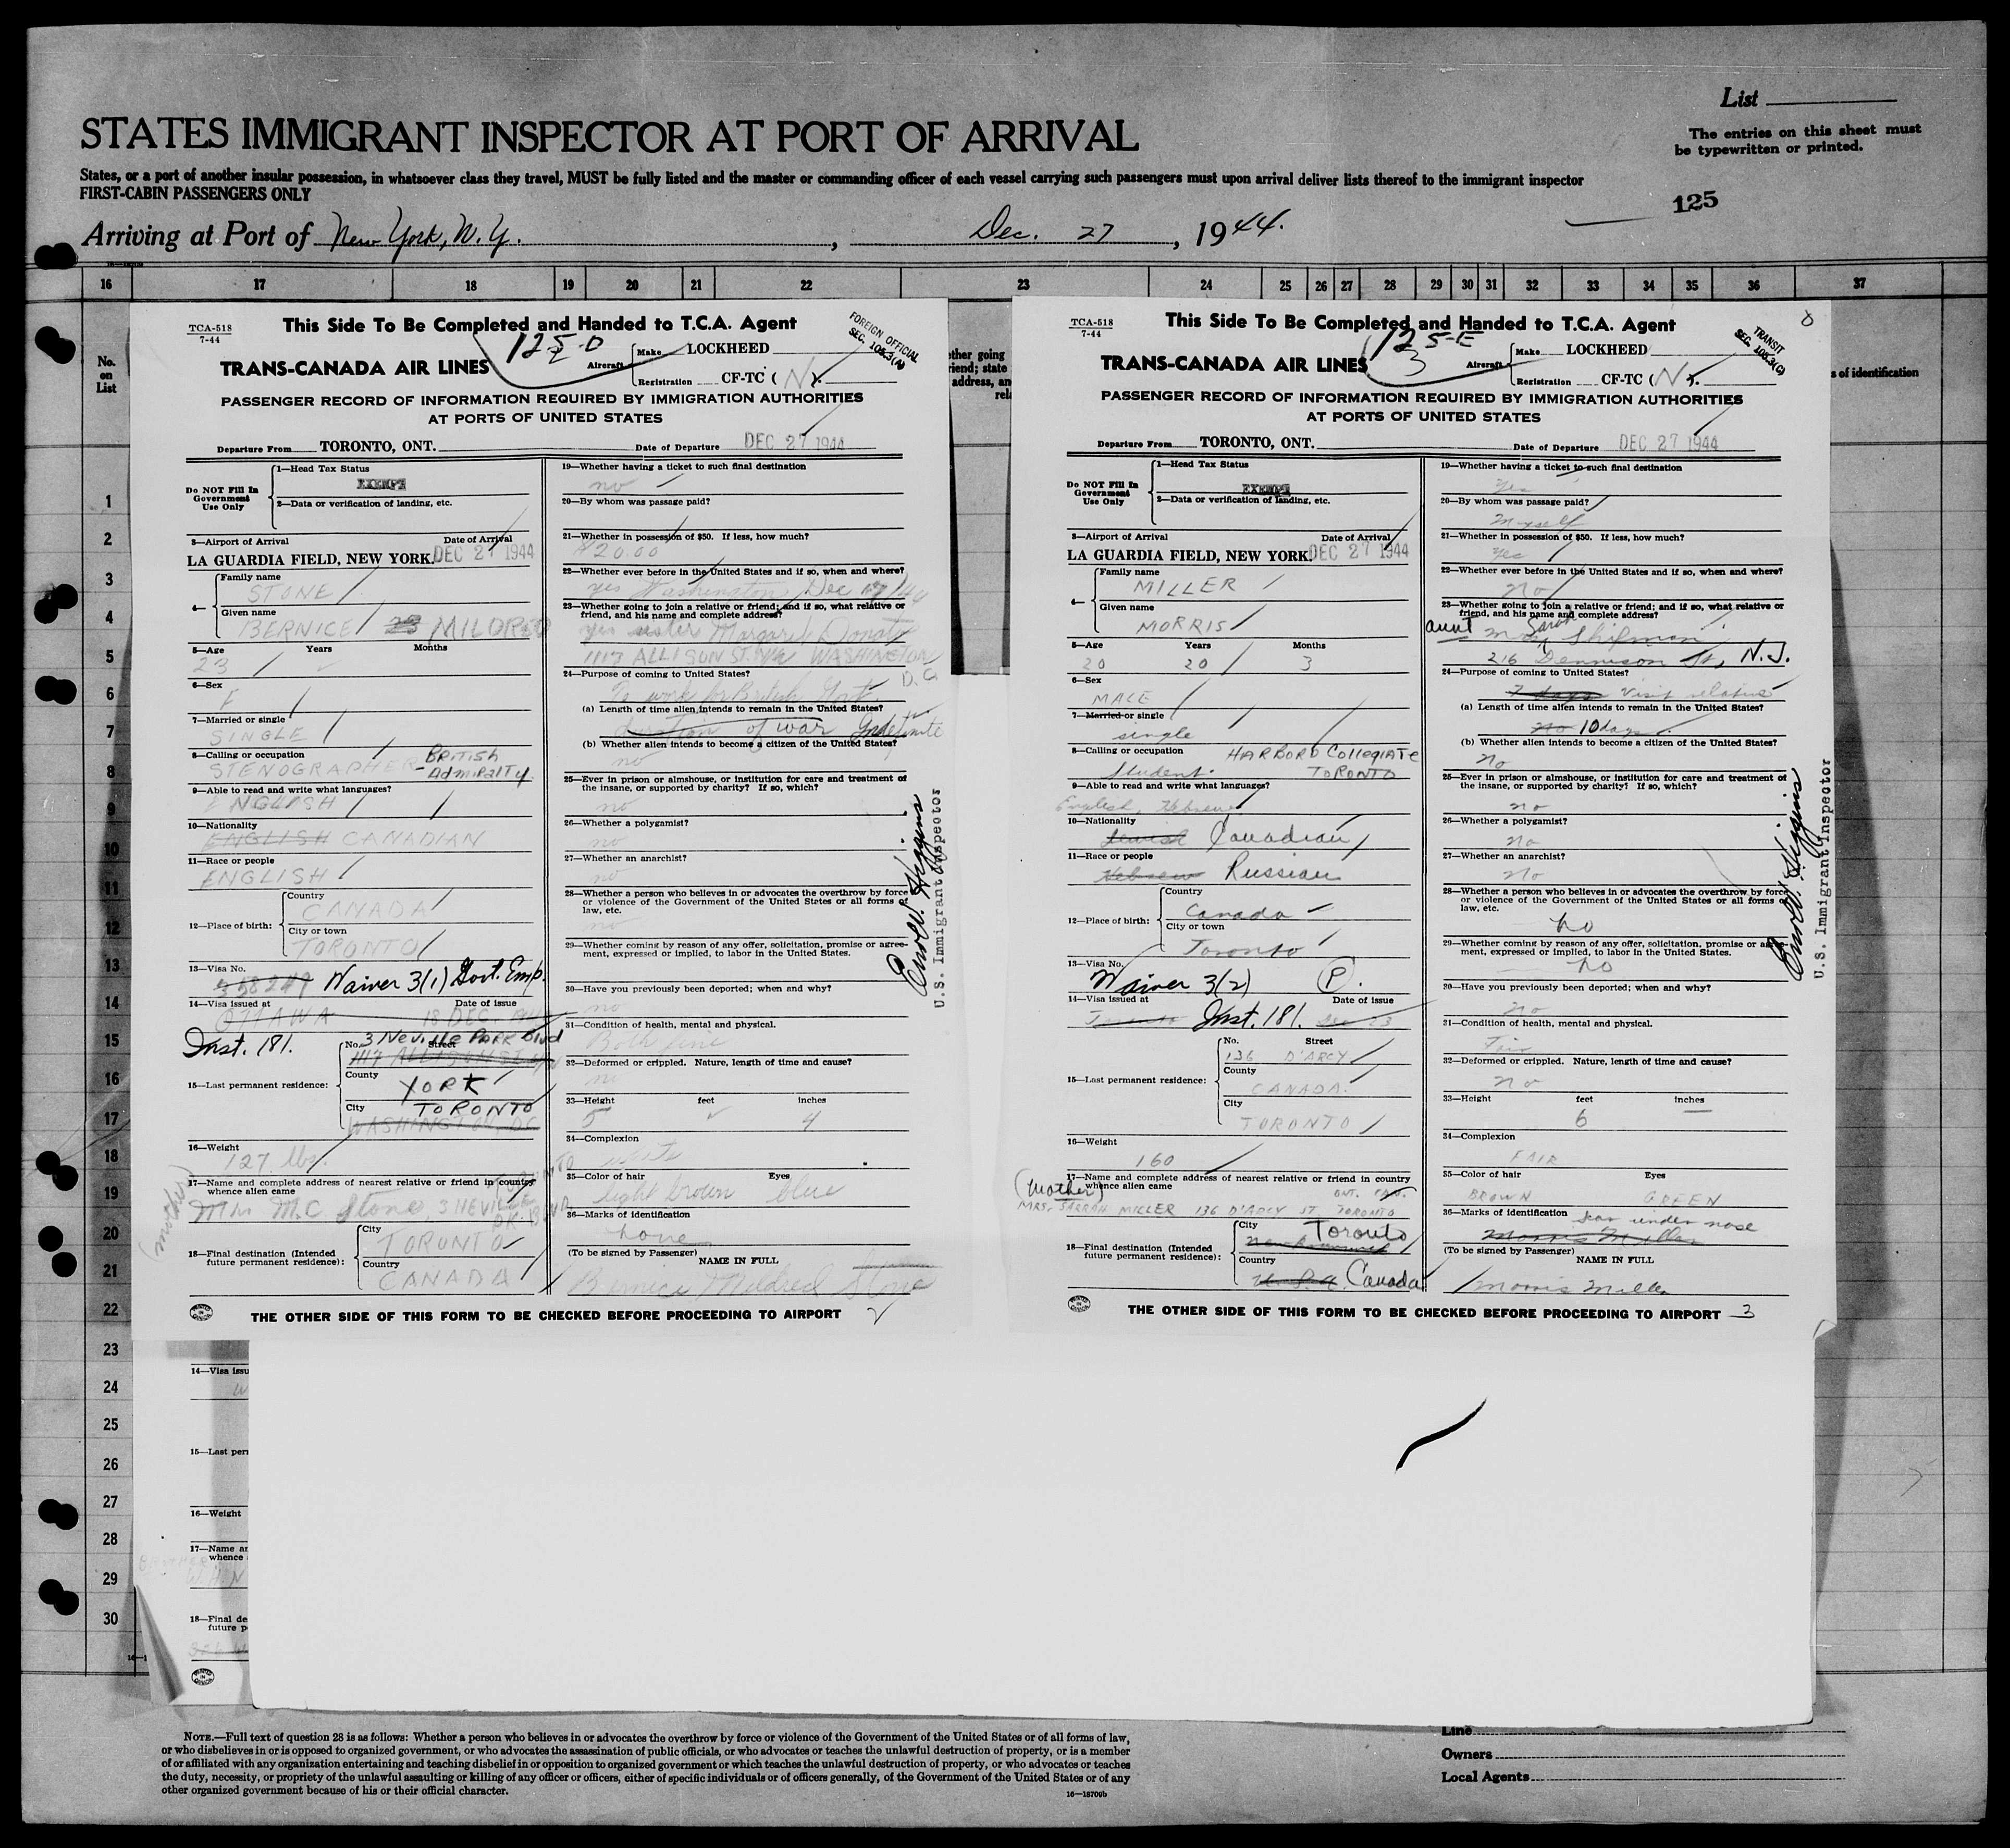 List
STATES IMMIGRANT INSPECTOR AT PORT OF ARRIVAL
The entries on this sheet must
be typewritten or printed.
States, or a port of another insular possession, in whatsoever class they travel, MUST be fully listed and the master or commanding officer of each vessel carrying such passengers must upon arrival deliver lists thereof to the immigrant inspector
FIRST-CABIN PASSENGERS ONLY
125
Arriving at Port of New York, N.Y. , Dec. 27 , 1944.
16 17 18 19 20 21 22 23 24 25 26 27 28 29 30 31 32 33 34 35 36 37
No. on List
1
2
3
4
5
6
7
8
9
10
11
12
13
14
15
16
17
18
19
20
21
22
23
24
25
26
27
28
29
30
TCA-518
7-44
This Side To Be Completed and Handed to T.C.A. Agent
FOREIGN OFFICIAL
125-D
TRANS-CANADA AIR LINES
Aircraft
Make LOCKHEED
Registration CF-TC ( N ).
PASSENGER RECORD OF INFORMATION REQUIRED BY IMMIGRATION AUTHORITIES
AT PORTS OF UNITED STATES
Departure From TORONTO, ONT. Date of Departure DEC 27 1944
Do NOT Fill In Government Use Only
1—Head Tax Status
EXEMPT
2—Data or verification of landing, etc.
3—Airport of Arrival Date of Arrival
LA GUARDIA FIELD, NEW YORK. DEC 27 1944
4— Family name
STONE
Given name
BERNICE MILDRED
5—Age Years Months
23
6—Sex
F
7—Married or single
SINGLE
8—Calling or occupation
STENOGRAPHER BRITISH
- Admiralty
9—Able to read and write what languages?
ENGLISH
10—Nationality
ENGLISH CANADIAN
11—Race or people
ENGLISH
12—Place of birth:
Country
CANADA
City or town
TORONTO
13—Visa No.
Waiver 3(1) Govt. Emp.
14—Visa issued at Date of issue
OTTAWA 18 DEC.
Inst. 181.
15—Last permanent residence:
No. Street
3 Neville Park Blvd
1117 ALLISON ST
County
YORK
City
TORONTO
WASHINGTON, DC
16—Weight
127 lbs.
17—Name and complete address of nearest relative or friend in country
whence alien came
M.C. Stone, 3 NEVILLE
PK. BLVD
TORONTO
(mother)
18—Final destination (Intended
future permanent residence):
City
TORONTO
Country
CANADA
19—Whether having a ticket to such final destination
no
20—By whom was passage paid?
21—Whether in possession of $50. If less, how much?
$20.00
22—Whether ever before in the United States and if so, when and where?
yes Washington Dec
23—Whether going to join a relative or friend; and if so, what relative or
friend, and his name and complete address?
yes sister Margaret
1117 ALLISON ST. WASHINGTON
D.C.
24—Purpose of coming to United States?
To work for British Govt.
(a) Length of time alien intends to remain in the United States?
duration of war Indefinite
(b) Whether alien intends to become a citizen of the United States?
no
25—Ever in prison or almshouse, or institution for care and treatment of
the insane, or supported by charity? If so, which?
no
26—Whether a polygamist?
no
27—Whether an anarchist?
no
28—Whether a person who believes in or advocates the overthrow by force
or violence of the Government of the United States or all forms of
law, etc.
no
29—Whether coming by reason of any offer, solicitation, promise or agree-
ment, expressed or implied, to labor in the United States.
30—Have you previously been deported; when and why?
no
31—Condition of health, mental and physical.
Both fine
32—Deformed or crippled. Nature, length of time and cause?
no
33—Height feet inches
5 4
34—Complexion
white
35—Color of hair Eyes
light brown blue
36—Marks of identification
none
(To be signed by Passenger) NAME IN FULL
Bernice Mildred Stone
U.S. Immigrant Inspector
THE OTHER SIDE OF THIS FORM TO BE CHECKED BEFORE PROCEEDING TO AIRPORT 2
TCA-518
7-44
This Side To Be Completed and Handed to T.C.A. Agent
8
TRANSIT
125-E
3
TRANS-CANADA AIR LINES
Aircraft
Make LOCKHEED
Registration CF-TC ( N ).
PASSENGER RECORD OF INFORMATION REQUIRED BY IMMIGRATION AUTHORITIES
AT PORTS OF UNITED STATES
Departure From TORONTO, ONT. Date of Departure DEC 27 1944
Do NOT Fill In Government Use Only
1—Head Tax Status
EXEMPT
2—Data or verification of landing, etc.
3—Airport of Arrival Date of Arrival
LA GUARDIA FIELD, NEW YORK. DEC 27 1944
4— Family name
MILLER
Given name
MORRIS
5—Age Years Months
20 20 3
6—Sex
MALE
7—Married or single
single
8—Calling or occupation HARBORD Collegiate
Student. TORONTO
9—Able to read and write what languages?
English, Hebrew
10—Nationality
Jewish Canadian
11—Race or people
Hebrew Russian
12—Place of birth:
Country
Canada
City or town
Toronto
13—Visa No.
Waiver 3(2) P.
14—Visa issued at Date of issue
Toronto Inst. 181. Dec 23
15—Last permanent residence:
No. Street
136 D'ARCY
County
CANADA.
City
TORONTO
16—Weight
160
17—Name and complete address of nearest relative or friend in country
whence alien came
(Mother)
MRS. SARRAH MILLER 136 D'ARCY ST. TORONTO
ONT. CAN.
18—Final destination (Intended
future permanent residence):
City
Toronto
New Brunswick
Country
U.S.A. Canada
19—Whether having a ticket to such final destination
Yes
20—By whom was passage paid?
Myself
21—Whether in possession of $50. If less, how much?
Yes
22—Whether ever before in the United States and if so, when and where?
No
23—Whether going to join a relative or friend; and if so, what relative or
friend, and his name and complete address?
aunt Sarah Shipman
216 Dennison St., N.J.
24—Purpose of coming to United States?
7 days Visit relative
(a) Length of time alien intends to remain in the United States?
No 10 days
(b) Whether alien intends to become a citizen of the United States?
No
25—Ever in prison or almshouse, or institution for care and treatment of
the insane, or supported by charity? If so, which?
no
26—Whether a polygamist?
No
27—Whether an anarchist?
No
28—Whether a person who believes in or advocates the overthrow by force
or violence of the Government of the United States or all forms of
law, etc.
No
29—Whether coming by reason of any offer, solicitation, promise or agree-
ment, expressed or implied, to labor in the United States.
No
30—Have you previously been deported; when and why?
No
31—Condition of health, mental and physical.
Fair
32—Deformed or crippled. Nature, length of time and cause?
No
33—Height feet inches
6 —
34—Complexion
FAIR
35—Color of hair Eyes
BROWN GREEN
36—Marks of identification scar under nose
Morris Miller
(To be signed by Passenger) NAME IN FULL
Morris Miller
U.S. Immigrant Inspector
THE OTHER SIDE OF THIS FORM TO BE CHECKED BEFORE PROCEEDING TO AIRPORT 3
s of identification
14—Visa issu
15—Last perm
16—Weight
17—Name an
whence
18—Final de
future p
NOTE.—Full text of question 28 is as follows: Whether a person who believes in or advocates the overthrow by force or violence of the Government of the United States or of all forms of law,
or who disbelieves in or is opposed to organized government, or who advocates the assassination of public officials, or who advocates or teaches the unlawful destruction of property, or is a member
of or affiliated with any organization entertaining and teaching disbelief in or opposition to organized government or which teaches the unlawful destruction of property, or who advocates or teaches
the duty, necessity, or propriety of the unlawful assaulting or killing of any officer or officers, either of specific individuals or of officers generally, of the Government of the United States or of any
other organized government because of his or their official character.
16—18709b
Line
Owners
Local Agents